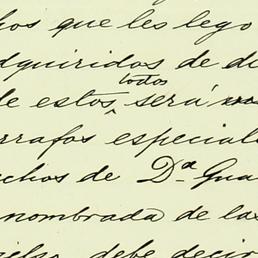 hos que les lego
dquiridos de di
todos
de estos ^ será
rrafos especial
chos de Dª Gua
nombrada de las
debe decir